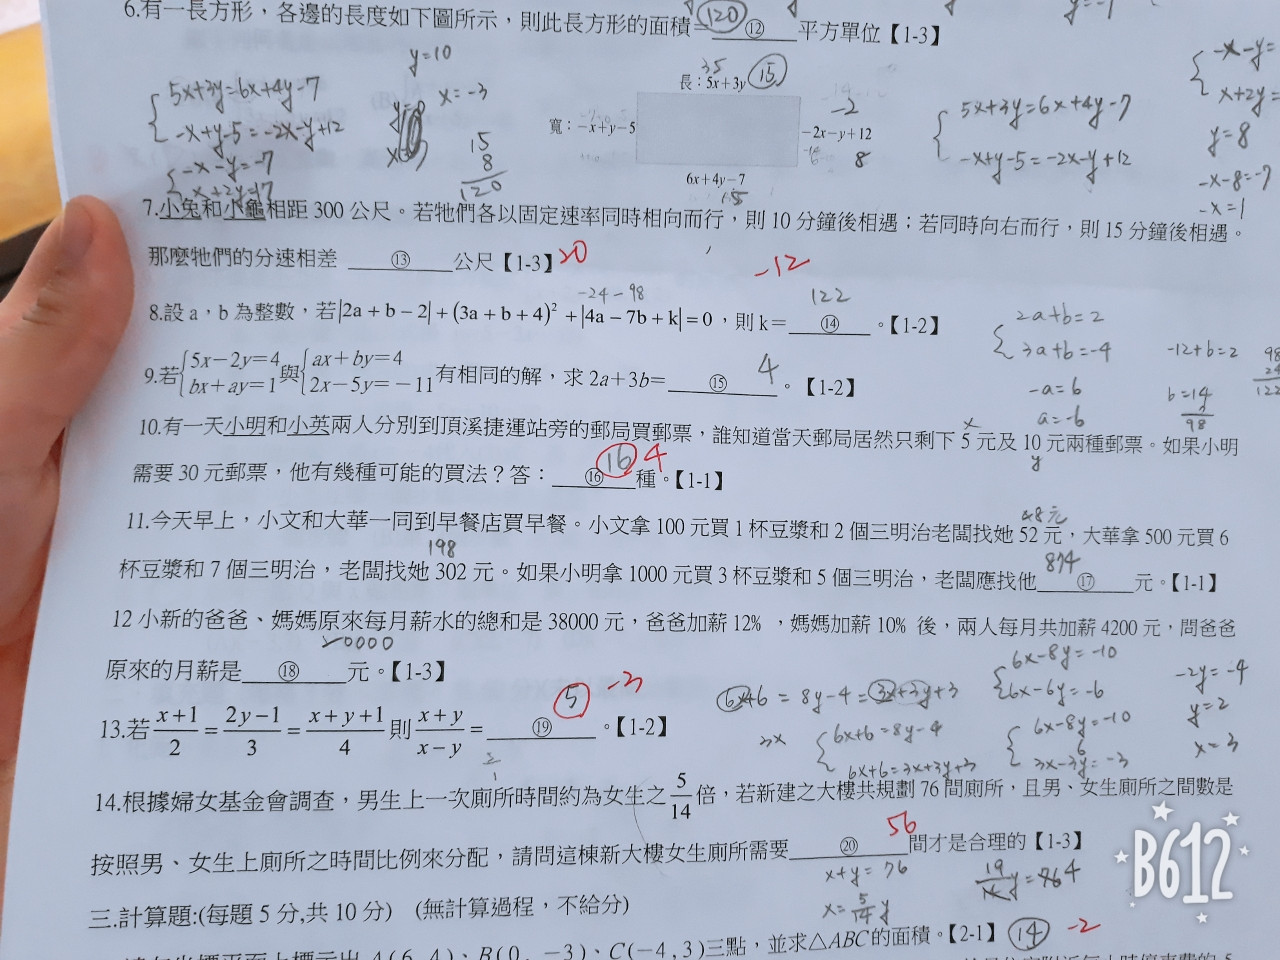 6.有一長方形，各邊的長度如下圖所示，則此長方形的面積=120 ⑫ 平方單位【1-3】
y=10
35
長：5x+3y 15
5x+3y=6x+4y-7
x=-3
-x+y-5=-2x-y+12
寬：-x+y-5
-2
-2x-y+12
8
5x+3y=6x+4y-7
-x+y-5=-2x-y+12
y=8
-x-8=-7
-x=1
15
8
120
-x-y=-7
x+2y=17
6x+4y-7
15
7.小兔和小龜相距 300 公尺。若牠們各以固定速率同時相向而行，則 10 分鐘後相遇；若同時向右而行，則 15 分鐘後相遇。
那麼牠們的分速相差 ⑬ 公尺【1-3】20
-12
-24-98
122
8.設 a，b 為整數，若|2a+b-2|+(3a+b+4)²+|4a-7b+k|=0，則 k= ⑭ 。【1-2】
2a+b=2
3a+b=-4
-a=6
a=-6
-12+b=2
b=14
98
98
24
122
9.若{5x-2y=4 與{ax+by=4 有相同的解，求 2a+3b= ⑮ 4 。【1-2】
bx+ay=1 2x-5y=-11
10.有一天小明和小英兩人分別到頂溪捷運站旁的郵局買郵票，誰知道當天郵局居然只剩下 5 元及 10 元兩種郵票。如果小明
x
y
需要 30 元郵票，他有幾種可能的買法？答： ⑯ 16 4 種。【1-1】
48元
11.今天早上，小文和大華一同到早餐店買早餐。小文拿 100 元買 1 杯豆漿和 2 個三明治老闆找她 52 元，大華拿 500 元買 6
198
874
杯豆漿和 7 個三明治，老闆找她 302 元。如果小明拿 1000 元買 3 杯豆漿和 5 個三明治，老闆應找他 ⑰ 元。【1-1】
12 小新的爸爸、媽媽原來每月薪水的總和是 38000 元，爸爸加薪 12% ，媽媽加薪 10% 後，兩人每月共加薪 4200 元，問爸爸
20000
原來的月薪是 ⑱ 元。【1-3】
5 -3
13.若 (x+1)/2=(2y-1)/3=(x+y+1)/4 則 (x+y)/(x-y)= ⑲ 。【1-2】
6x+6=8y-4=3x+3y+3
6x+6=8y-4
6x+6=3x+3y+3
6x-8y=-10
6x-6y=-6
6x-8y=-10
3x-3y=-3
-2y=-4
y=2
x=3
14.根據婦女基金會調查，男生上一次廁所時間約為女生之 5/14 倍，若新建之大樓共規劃 76 間廁所，且男、女生廁所之間數是
56
按照男、女生上廁所之時間比例來分配，請問這棟新大樓女生廁所需要 ⑳ 間才是合理的【1-3】
x+y=76
x=5/14 y
三.計算題:(每題 5 分,共 10 分) (無計算過程，不給分)
A(6,4)、B(0,-3)、C(-4,3)三點，並求△ABC的面積。【2-1】 14 -2
B612